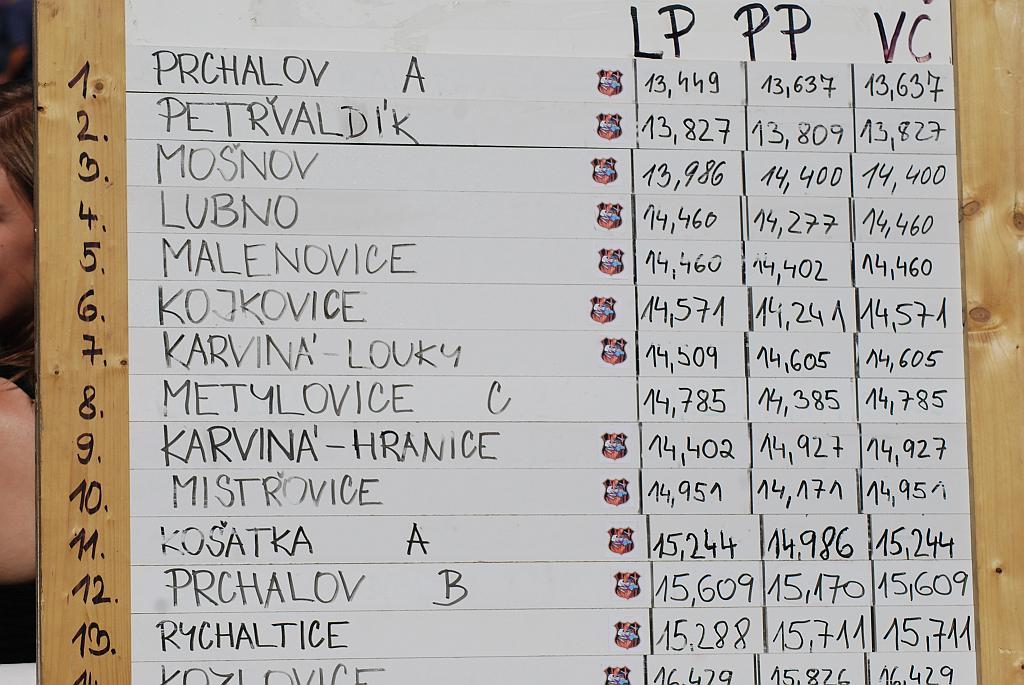 LP PP VČ
1. PRCHALOV A 13,449 13,637 13,637
2. PETŘVALDÍK 13,827 13,809 13,827
3. MOŠNOV 13,986 14,400 14,400
4. LUBNO 14,460 14,277 14,460
5. MALENOVICE 14,460 14,402 14,460
6. KOJKOVICE 14,571 14,241 14,571
7. KARVINÁ-LOUKY 14,509 14,605 14,605
8. METYLOVICE C 14,785 14,385 14,785
9. KARVINÁ-HRANICE 14,402 14,927 14,927
10. MISTŘOVICE 14,951 14,171 14,951
11. KOŠATKA A 15,244 14,986 15,244
12. PRCHALOV B 15,609 15,170 15,609
13. RYCHALTICE 15.288 15,711 15,711
14. KOZLOVICE 16,429 15,826 16,429